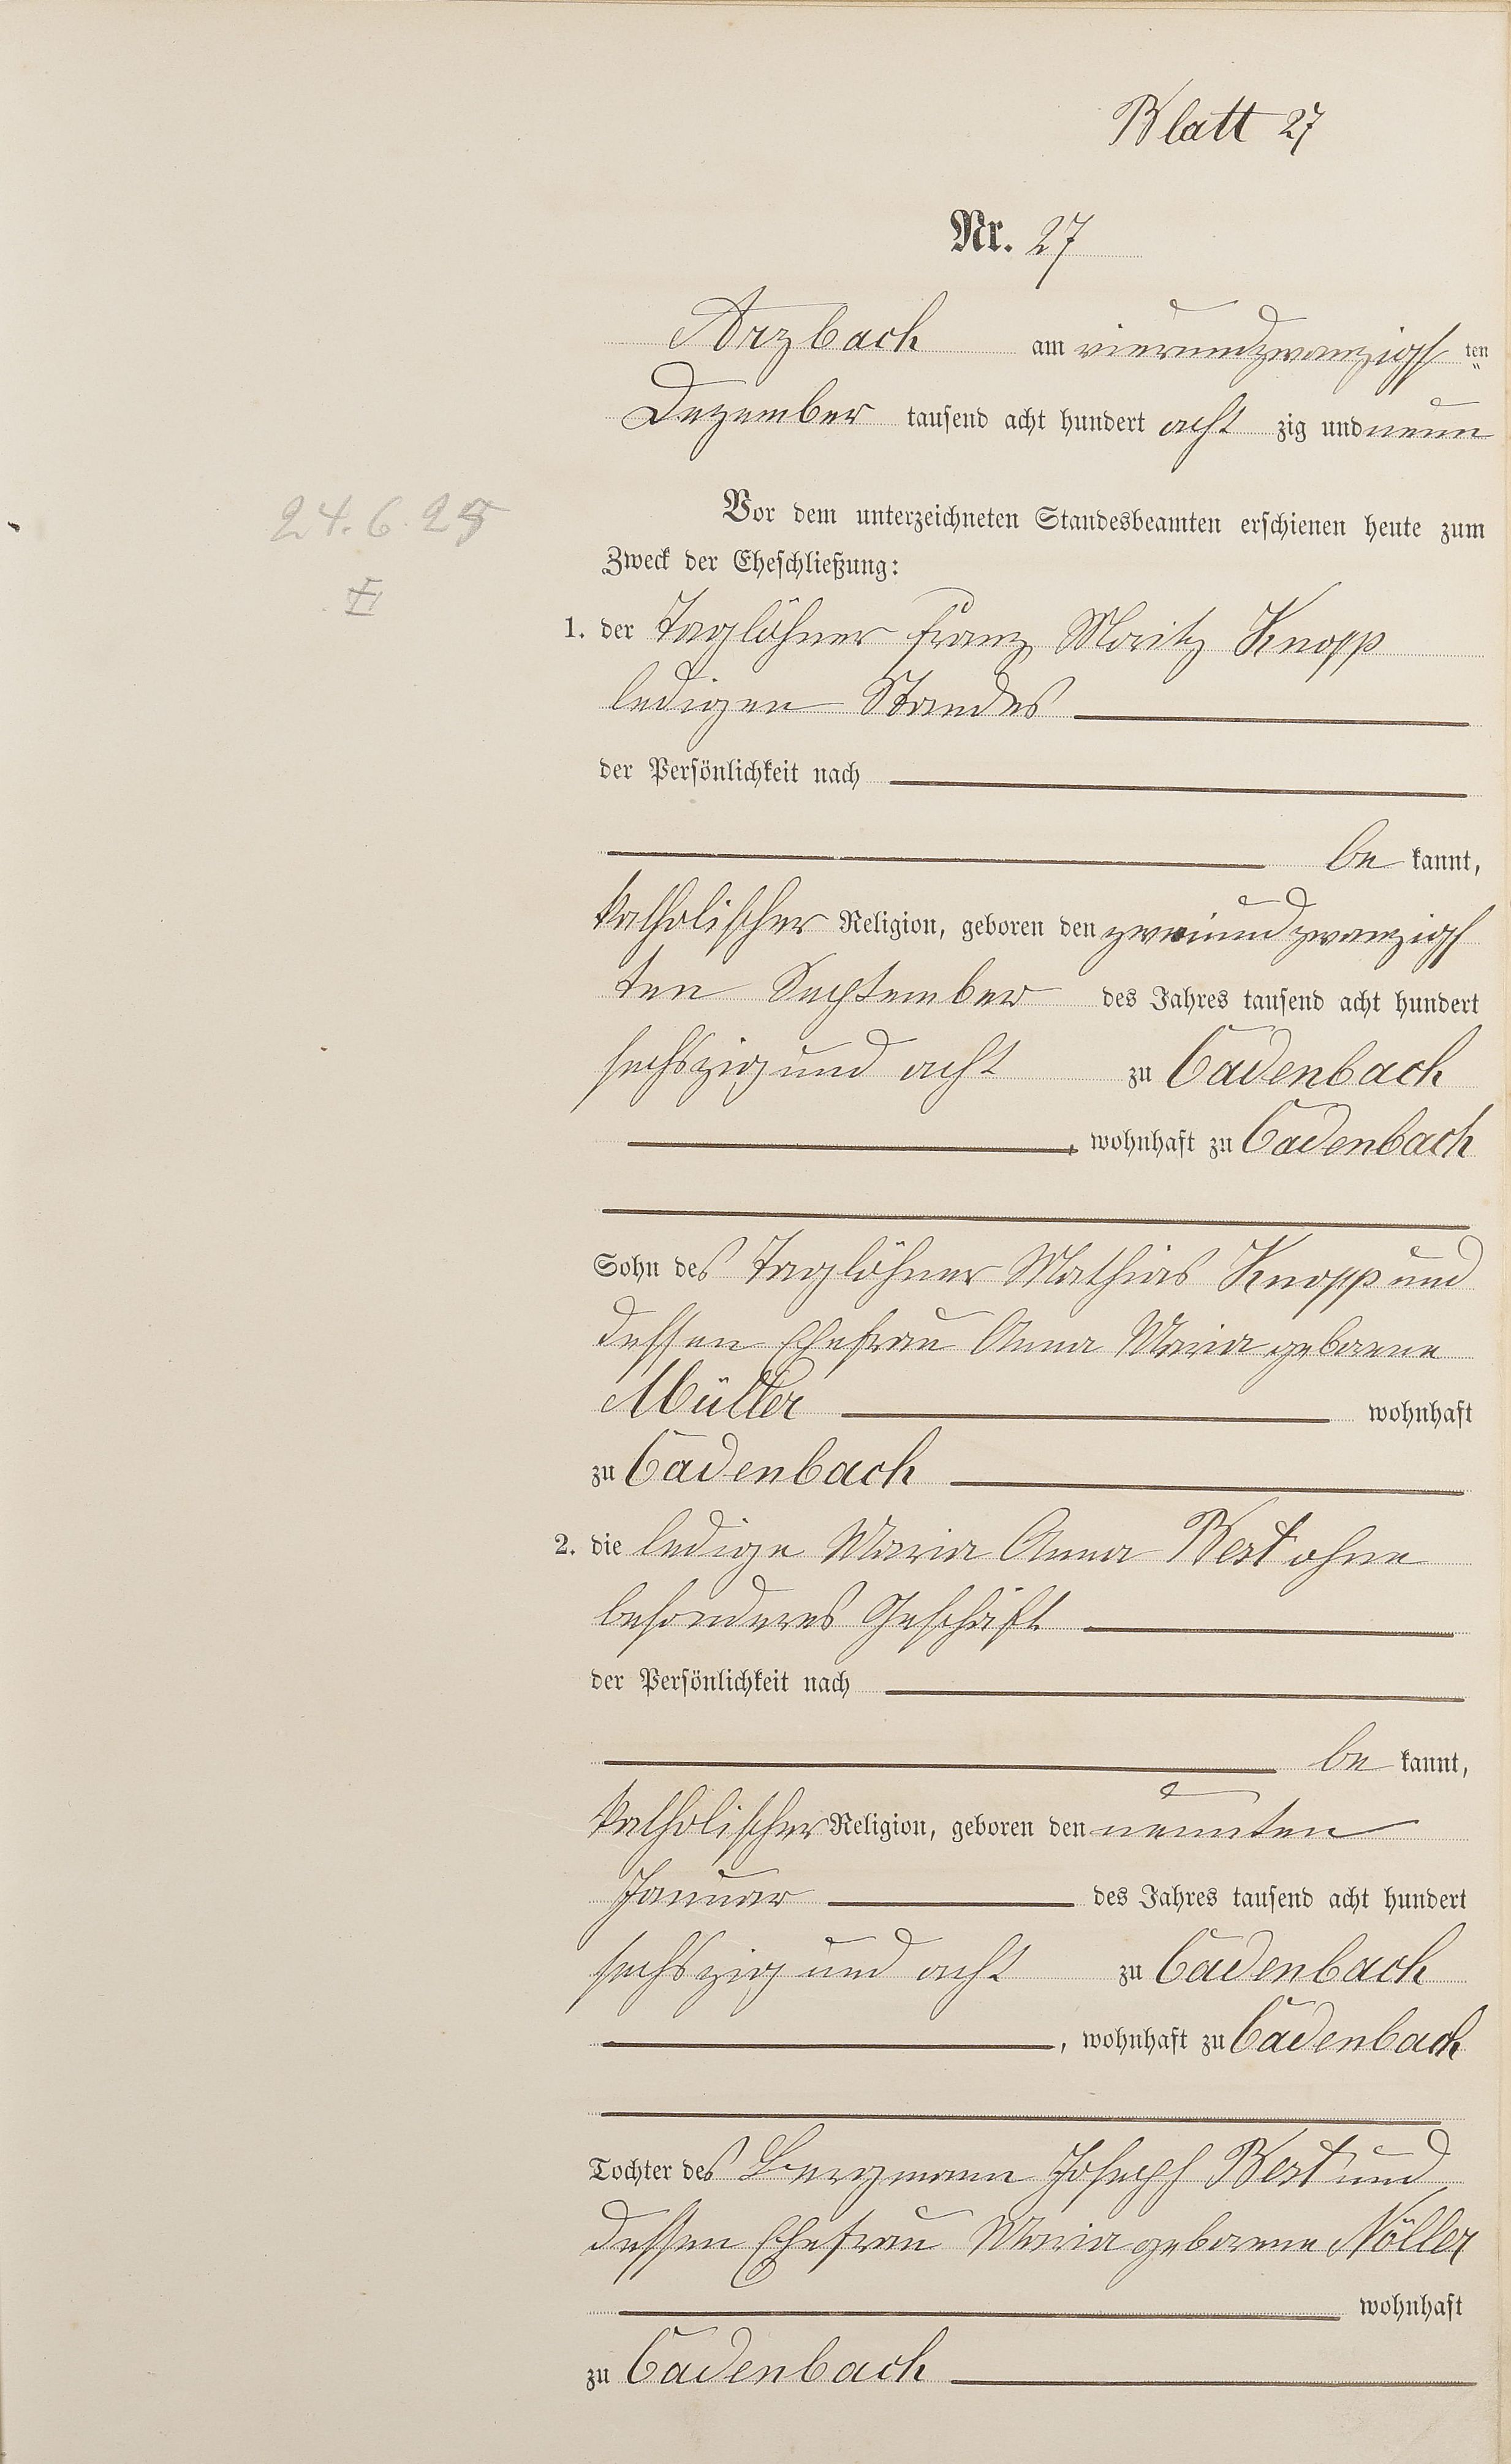 Blatt 27
Nr. 27
Arzbach am vierundzwanzigsten
Dezember tausend acht hundert achtzig und neun
24.6.25
Vor dem unterzeichneten Standesbeamten erschienen heute zum
Zweck der Eheschließung:
1. der Taglöhner Franz Moritz Knopp
ledigen Standes
der Persönlichkeit nach
be kannt,
katholischer Religion, geboren den zweiundzwanzigs
ten September des Jahres tausend acht hundert
sechszig und acht zu Cadenbach
, wohnhaft zu Cadenbach
Sohn des Taglöhner Mathias Knopp und
dessen Ehefrau Anna Maria geborene
Müller wohnhaft
zu Cadenbach
2. die ledige Maria Anna Best ohne
besonderes Geschäft
der Persönlichkeit nach
be kannt,
katholischer Religion, geboren den neunten
Januar des Jahres tausend acht hundert
sechszig und acht zu Cadenbach
, wohnhaft zu Cadenbach
Tochter des Bergmann Joseph Best und
dessen Ehefrau Maria geborene Nöller
wohnhaft
zu Cadenbach